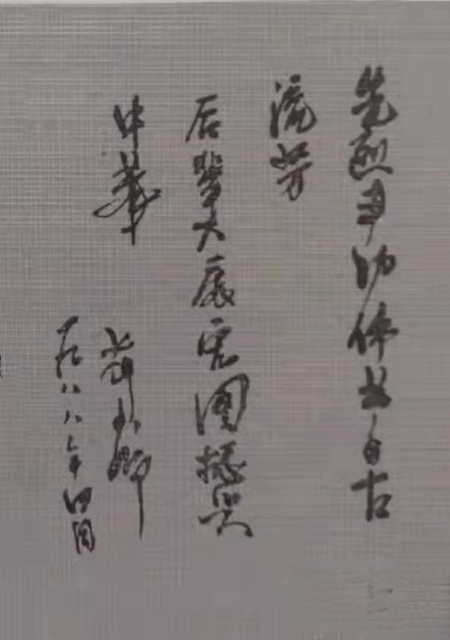 先烈丰功伟业自古
流芳
后辈大展宏图振兴
中华
一九八八年四月